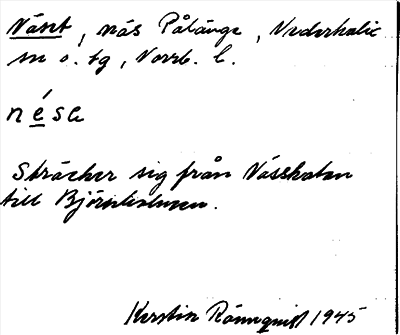 Näset, näs Pålänge, Nederkalix
sn o. tg, Norrb. l.
nésa
Sträcker sig från Nässkatan
till Björnholmen.
Kerstin Rönnquist 1945